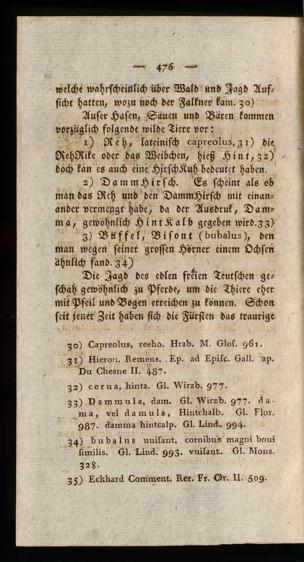 — 476 —
welche wahrscheinlich über Wald und Jagd Auf-
sicht hatten, wozu noch der Falkner kam. 30)
Außer Hasen, Säuen und Bären kommen
vorzüglich folgende wilde Tiere vor:
1) Reh, lateinisch capreolus, 31) die
RehRike oder das Weibchen, hieß Hint, 32)
doch kan es auch eine HirschKuh bedeutet haben.
2) DammHirsch. Es scheint als ob
man das Reh und den DammHirsch mit einan-
ander vermengt habe, da der Ausdruk, Dam-
ma, gewöhnlich HintKalb gegeben wird. 33)
3) Büffel, Visont (bubalus), den
man wegen seiner grossen Hörner einem Ochsen
ähnlich fand. 34)
Die Jagd des edlen freien Teutschen ge-
schah gewöhnlich zu Pferde, um die Thiere eher
mit Pfeil und Bogen erreichen zu können. Schon
seit jener Zeit haben sich die Fürsten das traurige
30) Capreolus, reeho. Hrab. M. Glos. 961.
31) Hieron. Remens. Ep. ad Episc. Gall. ap.
Du Chesne II. 487.
32) cerua, hinta. Gl. Wirzb. 977.
33) Dammula, dam. Gl. Wirzb. 977. da-
ma, vel damula, Hintchalb. Gl. Flor.
987. damma hintcalp. Gl. Lind. 994.
34) bubalus uuisant, cornibus magni boui
similis. Gl. Lind. 993. vuisant. Gl. Mons.
328.
35) Eckhard Comment. Rer. Fr. Or. II. 509.